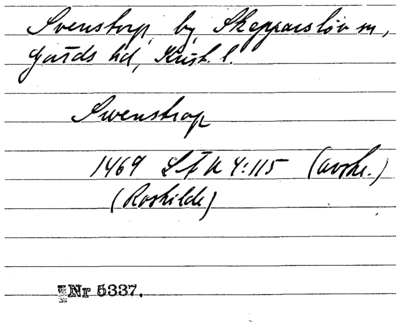 Svenstorp, by, Skepparslöv sn,
Gärds hd, Krist. l.
Swenstrop
1469 LfU 4:115 (avskr.)
(Roskilde)
Nr 5337.